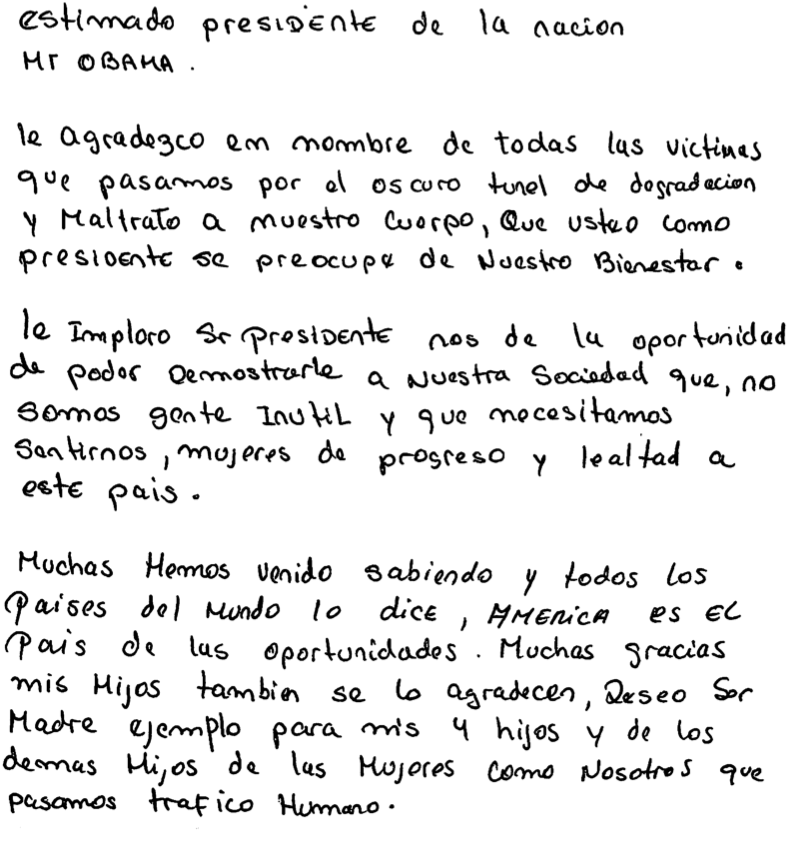 estimado presidente de la nacion
Mr OBAMA.
le agradezco en nombre de todas las victimas
que pasamos por el oscuro tunel de degradacion
y Maltrato a nuestro Cuerpo, Que usted como
presidente se preocupe de Nuestro Bienestar.
le Imploro Sr presidente nos de la oportunidad
de poder Demostrarle a Nuestra Sociedad que, no
somos gente Inutil y que necesitamos
Sentirnos, mujeres de progreso y lealtad a
este pais.
Muchas Hemos venido sabiendo y todos los
Paises del Mundo lo dice, AMERICA es EL
Pais de las oportunidades. Muchas gracias
mis Hijos tambien se lo agradecen, Deseo Ser
Madre ejemplo para mis 4 hijos y de los
demas Hijos de las Mujeres Como Nosotros que
pasamos trafico Humano.